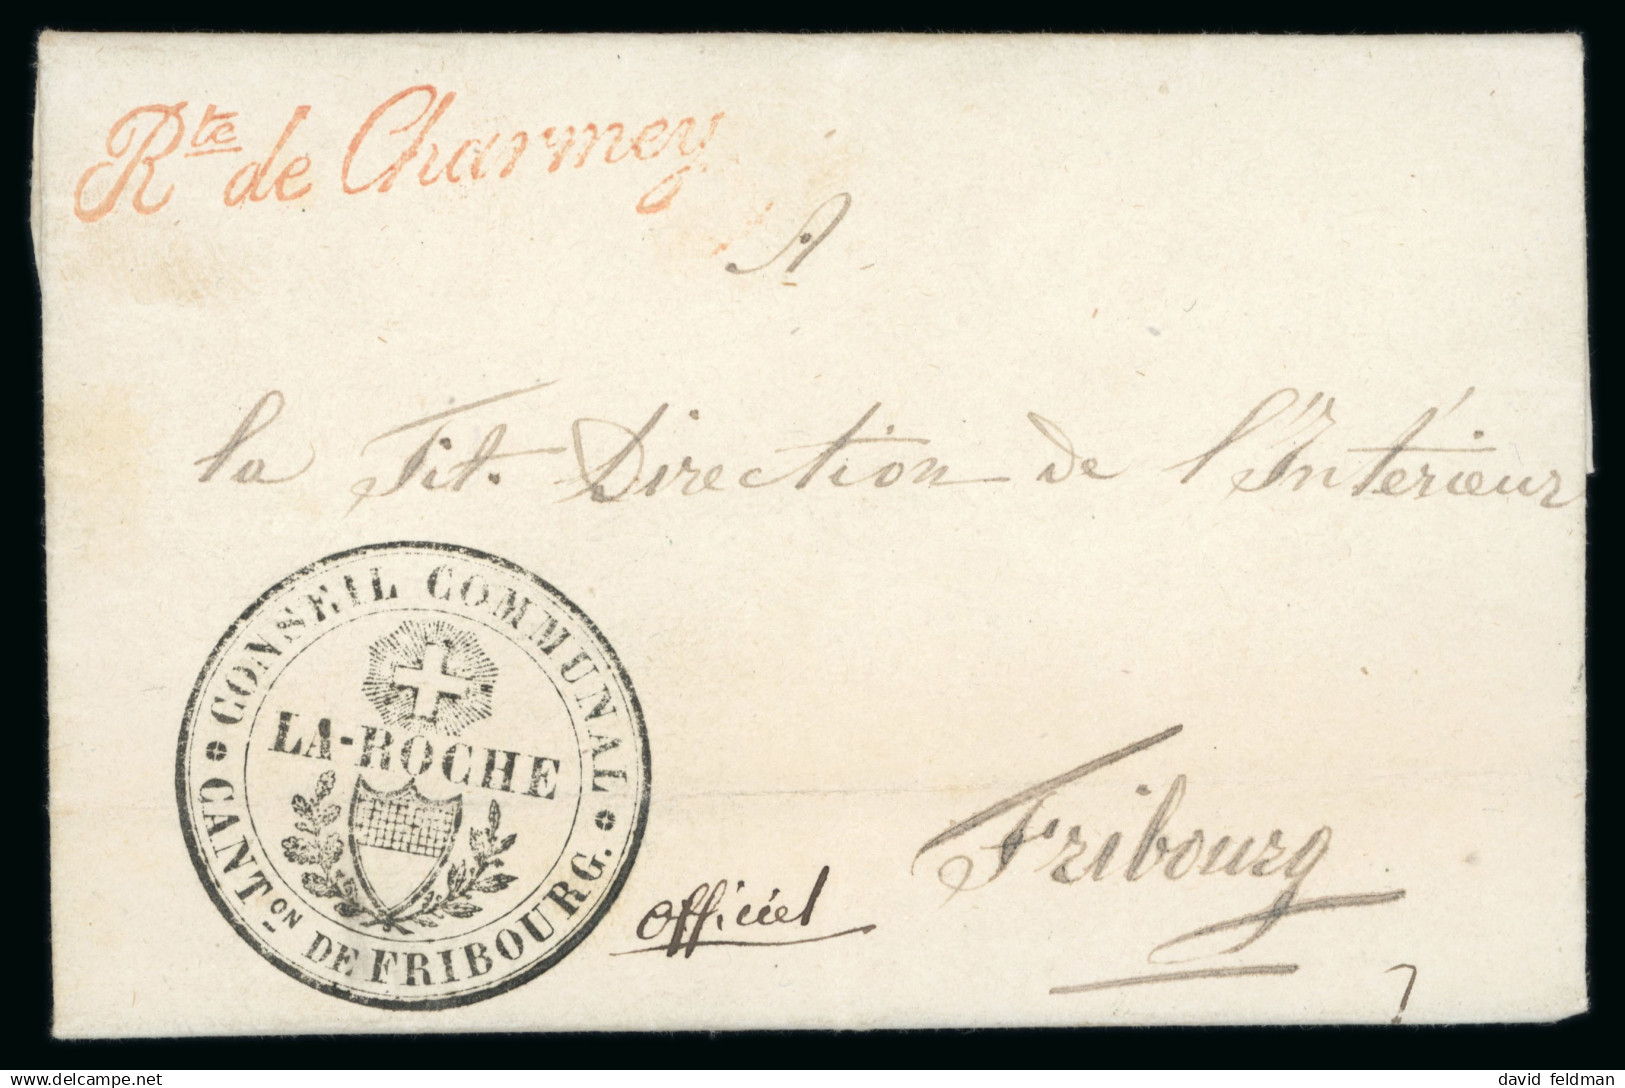 Rte de Charmey
A
la Tit. Direction de l'Intérieur
CONSEIL COMMUNAL
LA-ROCHE
CANTON DE FRIBOURG.
Officiel
Fribourg
david feldman